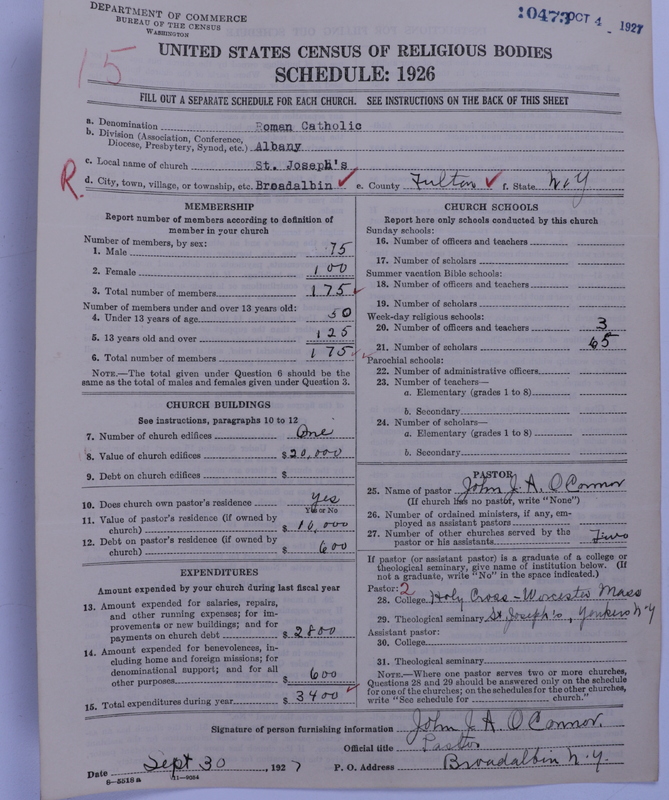 DEPARTMENT OF COMMERCE
BUREAU OF THE CENSUS
WASHINGTON
10473 OCT 4 - 1927
15
UNITED STATES CENSUS OF RELIGIOUS BODIES
SCHEDULE: 1926
FILL OUT A SEPARATE SCHEDULE FOR EACH CHURCH. SEE INSTRUCTIONS ON THE BACK OF THIS SHEET
a. Denomination Roman Catholic
b. Division (Association, Conference, Diocese, Presbytery, Synod, etc.) Albany
c. Local name of church St. Joseph's
R. d. City, town, village, or township, etc. Broadalbin ✓ e. County Fulton ✓ f. State N.Y
MEMBERSHIP
Report number of members according to definition of
member in your church
Number of members, by sex:
1. Male 75
2. Female 100
3. Total number of members 175 ✓
Number of members under and over 13 years old:
4. Under 13 years of age 50
5. 13 years old and over 125
6. Total number of members 175 ✓
NOTE.—The total given under Question 6 should be the
same as the total of males and females given under Question 3.
CHURCH BUILDINGS
See instructions, paragraphs 10 to 12
7. Number of church edifices One
8. Value of church edifices $20,000
9. Debt on church edifices $
10. Does church own pastor's residence Yes
Yes or No
11. Value of pastor's residence (if owned by
church) $ 10,000
12. Debt on pastor's residence (if owned by
church) $ 600
EXPENDITURES
Amount expended by your church during last fiscal year
13. Amount expended for salaries, repairs,
and other running expenses; for im-
provements or new buildings; and for
payments on church debt $ 2800
14. Amount expended for benevolences, in-
cluding home and foreign missions; for
denominational support; and for all
other purposes $ 600
15. Total expenditures during year $ 3400 ✓
CHURCH SCHOOLS
Report here only schools conducted by this church
Sunday schools:
16. Number of officers and teachers
17. Number of scholars
Summer vacation Bible schools:
18. Number of officers and teachers
19. Number of scholars
Week-day religious schools:
20. Number of officers and teachers 3
21. Number of scholars 65
Parochial schools:
22. Number of administrative officers
23. Number of teachers—
a. Elementary (grades 1 to 8)
b. Secondary
24. Number of scholars—
a. Elementary (grades 1 to 8)
b. Secondary
PASTOR
25. Name of pastor John J. A. O'Connor
(If church has no pastor, write "None")
26. Number of ordained ministers, if any, em-
ployed as assistant pastors
27. Number of other churches served by the
pastor or his assistants Two
If pastor (or assistant pastor) is a graduate of a college or
theological seminary, give name of institution below. (If
not a graduate, write "No" in the space indicated.)
Pastor: 2
28. College Holy Cross - Worcester Mass
29. Theological seminary St Joseph's, Yonkers N.Y
Assistant pastor:
30. College
31. Theological seminary
NOTE.—Where one pastor serves two or more churches,
Questions 28 and 29 should be answered only on the schedule
for one of the churches; on the schedules for the other churches,
write "See schedule for church."
Signature of person furnishing information John J. A. O'Connor.
Official title Pastor
Date Sept 30, 1927 P. O. Address Broadalbin N.Y.
8-5518 a 11-9084